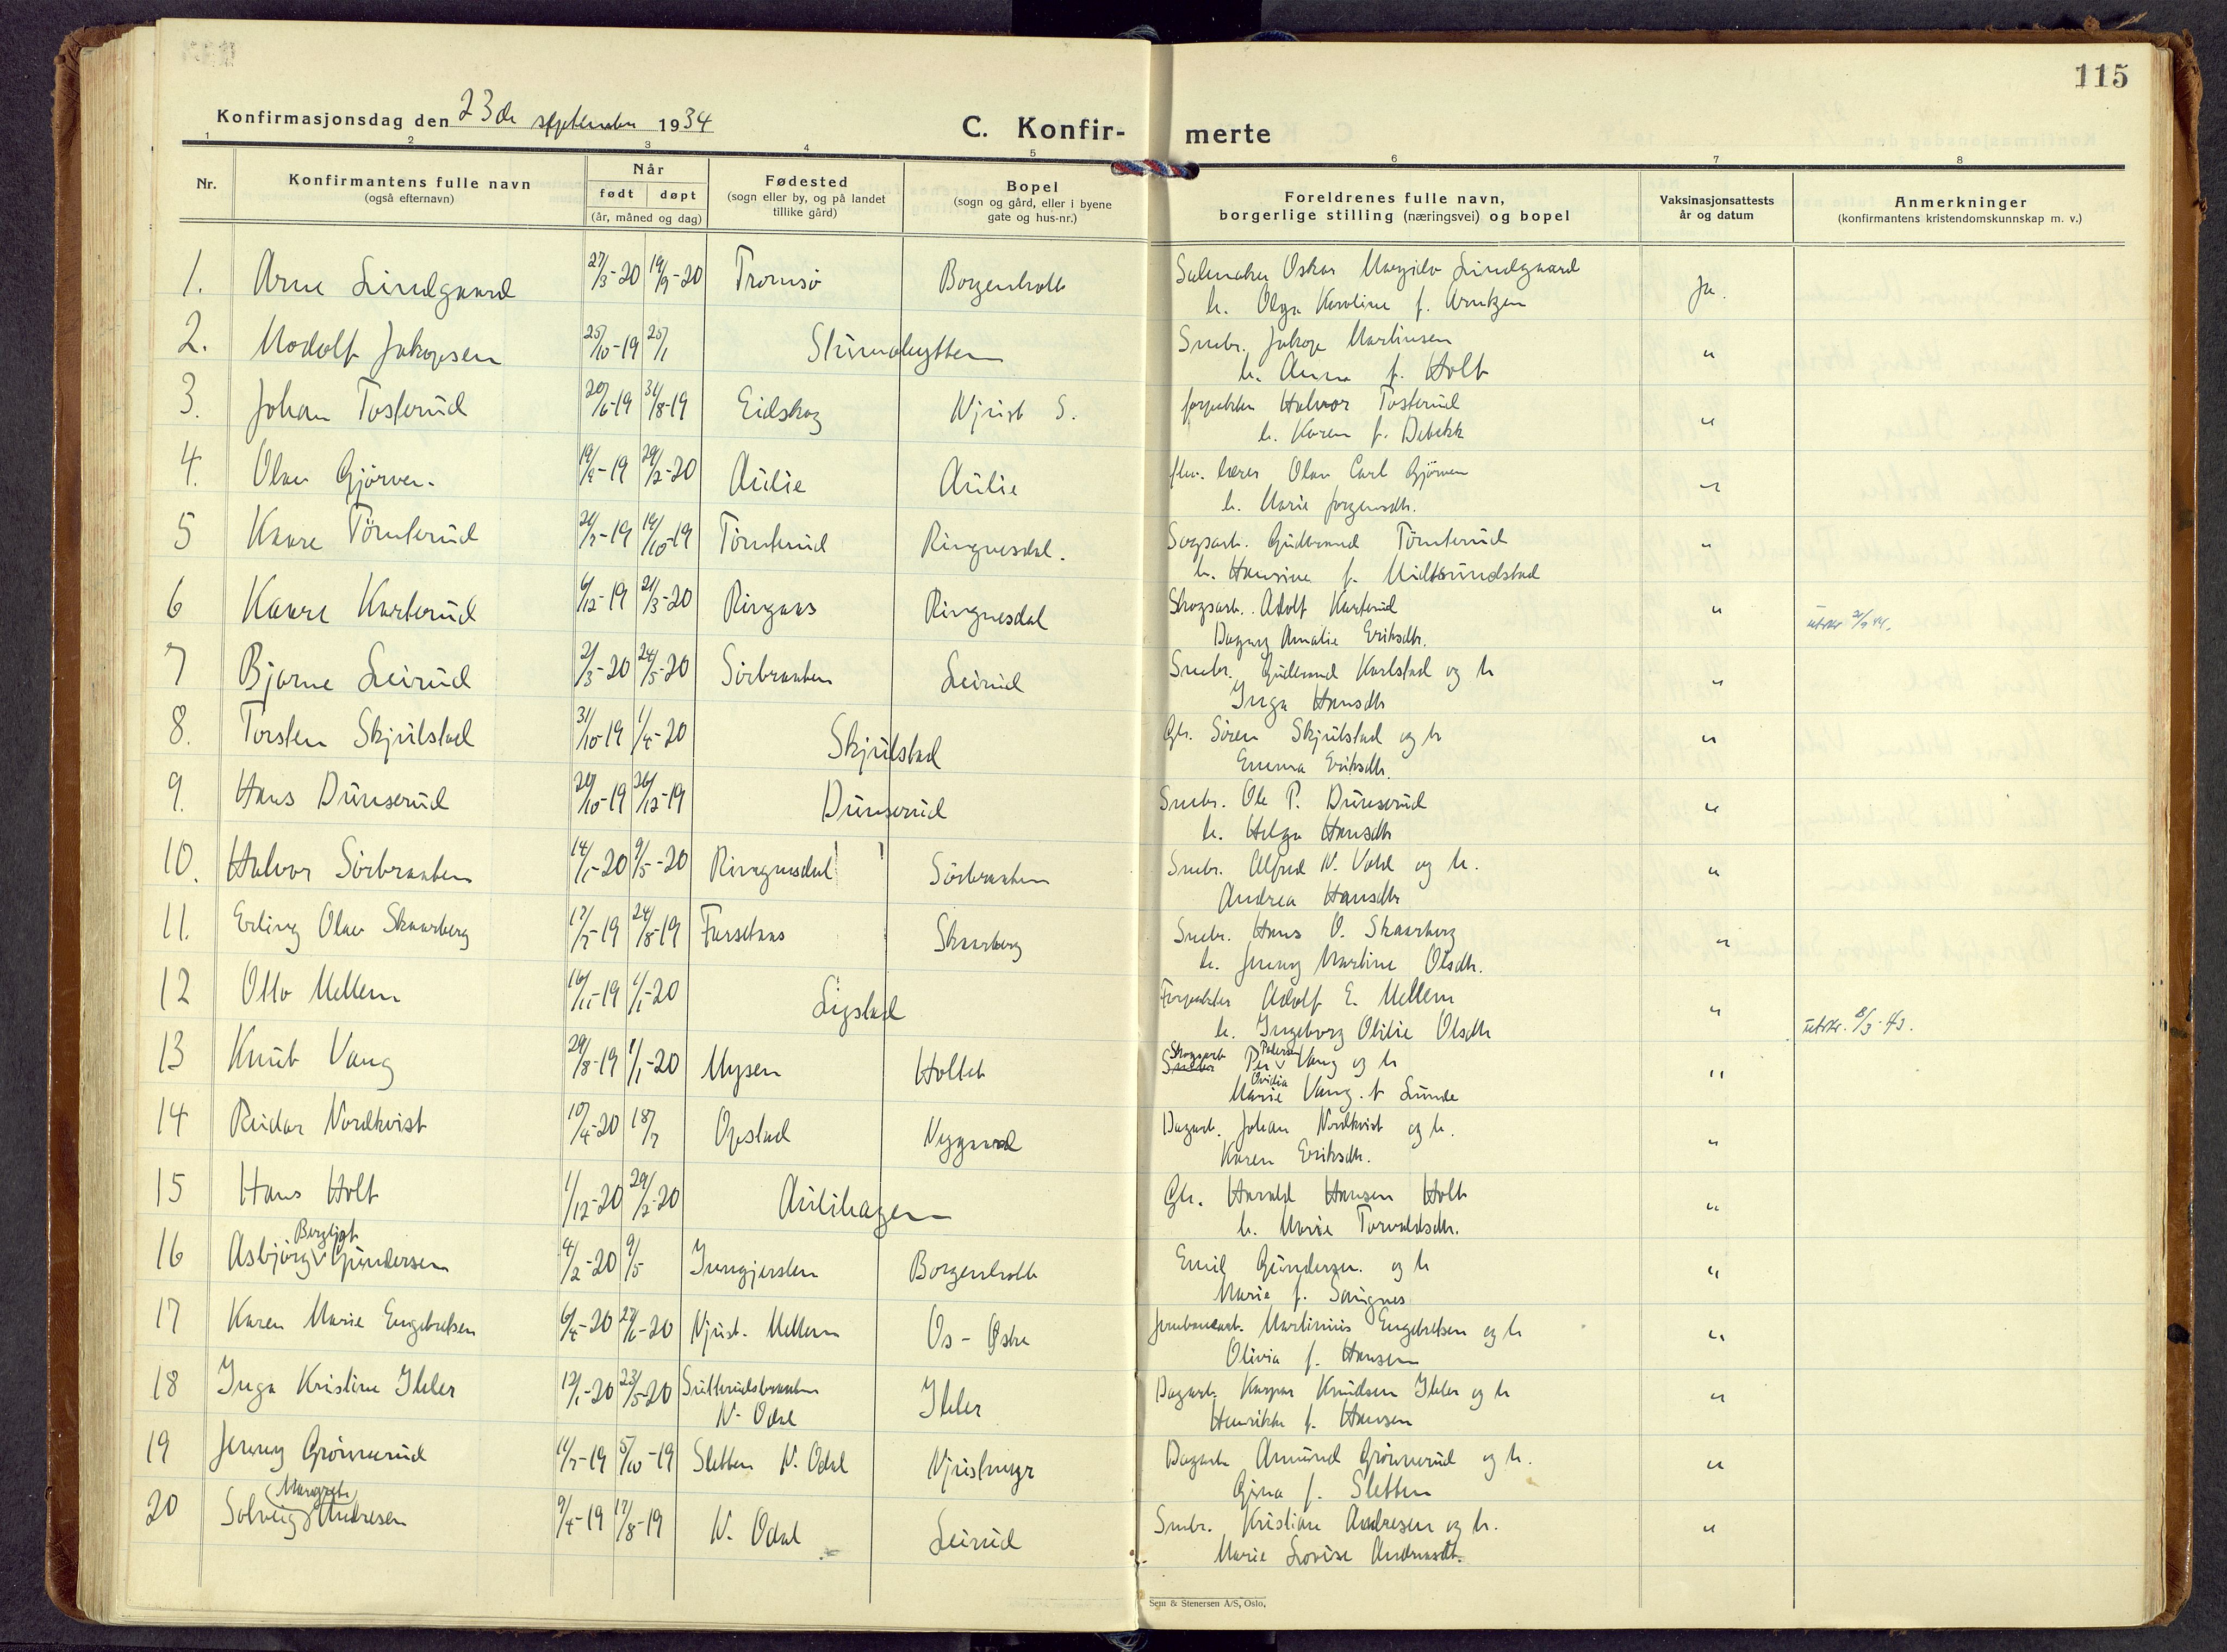 115
Konfirmasjonsdag den 23de september 1934
C. Konfir-merte
1 2 3 4 5 6 7 8
Nr.
Konfirmantens fulle navn
(også efternavn)
Når
født døpt
(år, måned og dag)
Fødested
(sogn eller by, og på landet
tillike gård)
Bopel
(sogn og gård, eller i byene
gate og hus-nr.)
Foreldrenes fulle navn,
borgerlige stilling (næringsvei) og bopel
Vaksinasjonsattests
år og datum
Anmerkninger
(konfirmantens kristendomskunnskap m. v.)
1. Arne Lindgaard 27/3-20 19/9-20 Tromsø Borgenholt Salmaker Oskar Lindgaard Ja.
h. Olga Karoline f. Arntzen
2. Modolf Jakopsen 25/10-19 25/1 Smbr. Jakop Martinsen "
h. Anna f. Holt
3. Johan Tosterud 20/6-19 31/8-19 Eidskog Njust S. forpakter Halvor Tosterud "
h. Karen f. Debekk
4. Olav Gjörven. 19/9-19 29/2-20 Aulie Aulie lærer Olav Carl Gjörven "
h. Marie Jörgensdtr.
5 Kaare Törnterud 24/7-19 19/10-19 Törnterud Ringnesdal. Gudbrand Törnterud "
h. Hansine f. Midtsundstad
6 Kaare Karterud 6/12-19 21/3-20 Ringnes Ringnesdal Skogsarb. Adolf Karterud "
Dagny Amalie Eriksdtr.
7 Bjarne Leirud 2/3-20 24/5-20 Sörbraaten Leirud Smbr. Gudbrand Karlstad og h "
Inga Hansdtr
8. Torsten Skjulstad 31/10-19 1/4-20 Skjulstad Gbr. Sören Skjulstad og h "
Emma Eriksdtr.
9. Hans Dunserud 20/10-19 26/12-19 Dunserud Smbr. Ole P. Dunserud "
h. Helga Hansdtr
10. Halvor Sörbraaten 14/1-20 9/5-20 Ringnesdal Sörbraaten Smbr. Alfred N. Vold og h. "
Andrea Hansdtr
11. Erling Olav Skaarberg 17/7-19 24/8-19 Fursetaas Skaarberg Smbr. Hans O. Skaarberg "
h. Jenny Martine Olsdtr.
12 Otto Mellem 16/11-19 1/1-20 Ligstad Forpakter Adolf E. Mellem " utskr. 8/3-43.
h. Ingeborg Otilie Olsdtr
13 Knut Vang 29/8-19 1/1-20 Mysen Holtet Skogsarb Per Pedersen Vang og h "
Marie Ovidia Vang. f Lunde
14 Reidar Nordkvist 10/4-20 18/7 Opstad Nygaard Dagarb. Johan Nordkvist og h. "
Karen Eriksdtr.
15 Hans Holt 1/12-20 29/2-20 Aulihagen Gbr. Harald Hansen Holt "
h. Marie Torvaldsdtr.
16 Asbjörg Bergljot Gundersen 4/2-20 9/5 Borgenholt Emil Gundersen. og h "
Marie f. Saugnes
17 Karen Marie Engebretsen 6/4-20 27/6-20 Njust. Mellem Os - Østre Jernbanearb. Martinius Engebretsen og h "
Olivia f. Hansen
18 Inga Kristine Ihler 12/1-20 23/5-20 Sætterudsbraaten Ihler Dagarb. Kaspar Knudsen Ihler og h "
N. Odal Henrikke f. Hansen
19 Jenny Grönnerud 11/7-19 5/10-19 Sletten N. Odal Njustmyr Dagarb Amund Grönnerud og h. "
Gina f. Sletten
20 Solveig Margrete Andresen 9/4-19 17/8-19 N. Odal Leirud Smbr. Kristian Andresen og h. "
Marie Lovise Andreasdtr.
Sem & Stenersen A/S, Oslo.